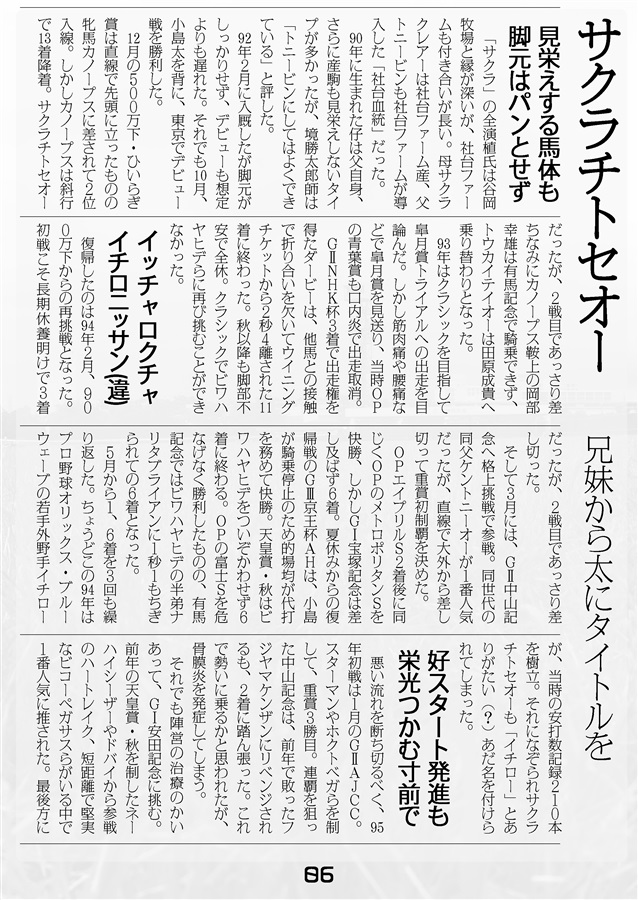 サクラチトセオー
兄妹から太にタイトルを
見栄えする馬体も
脚元はパンとせず
「サクラ」の全演植氏は谷岡
牧場と縁が深いが、社台ファー
ムも付き合いが長い。母サクラ
クレアーは社台ファーム産、父
トニービンも社台ファームが導
入した「社台血統」だった。
90年に生まれた仔は父自身、
さらに産駒も見栄えしないタイ
プが多かったが、境勝太郎師は
「トニービンにしてはよくでき
ている」と評した。
92年2月に入厩したが脚元が
しっかりせず、デビューも想定
よりも遅れた。それでも10月、
小島太を背に、東京でデビュー
戦を勝利した。
12月の500万下・ひいらぎ
賞は直線で先頭に立ったものの
牝馬カノープスに差されて2位
入線。しかしカノープスは斜行
で13着降着。サクラチトセオー
だったが、2戦目であっさり差
ちなみにカノープス鞍上の岡部
幸雄は有馬記念で騎乗できず、
トウカイテイオーは田原成貴へ
乗り替わりとなった。
93年はクラシックを目指して
皐月賞トライアルへの出走を目
論んだ。しかし筋肉痛や腰痛な
どで皐月賞を見送り、当時OP
の青葉賞も口内炎で出走取消。
GⅡNHK杯3着で出走権を
得たダービーは、他馬との接触
で折り合いを欠いてウイニング
チケットから2秒4離された11
着に終わった。秋以降も脚部不
安で全休。クラシックでビワハ
ヤヒデらに再び挑むことができ
なかった。
イッチャロクチャ
イチロニッサン(違)
復帰したのは94年2月、90
0万下からの再挑戦となった。
初戦こそ長期休養明けで3着
だったが、2戦目であっさり差
し切った。
そして3月には、GⅡ中山記
念へ格上挑戦で参戦。同世代の
同父ケントニーオーが1番人気
だったが、直線で大外から差し
切って重賞初制覇を決めた。
OPエイプリルS2着後に同
じくOPのメトロポリタンSを
快勝、しかしGⅠ宝塚記念は差
し及ばず6着。夏休みからの復
帰戦のGⅢ京王杯AHは、小島
が騎乗停止のため的場均が代打
を務めて快勝。天皇賞・秋はビ
ワハヤヒデをついぞかわせず6
着に終わる。OPの富士Sを危
なげなく勝利したものの、有馬
記念ではビワハヤヒデの半弟ナ
リタブライアンに1秒1もちぎ
られての6着となった。
5月から1、6着を3回も繰
り返した。ちょうどこの94年は
プロ野球オリックス・ブルー
ウェーブの若手外野手イチロー
が、当時の安打数記録210本
を樹立。それになぞられサクラ
チトセオーも「イチロー」とあ
りがたい(?)あだ名を付けら
れてしまった。
好スタート発進も
栄光つかむ寸前で
悪い流れを断ち切るべく、95
年初戦は1月のGⅡAJCC。
スターマンやホクトベガらを制
して、重賞3勝目。連覇を狙っ
た中山記念は、前年で敗ったフ
ジヤマケンザンにリベンジされ
るも、2着に踏ん張った。これ
で勢いに乗るかと思われたが、
骨膜炎を発症してしまう。
それでも陣営の治療のかい
あって、GⅠ安田記念に挑む。
前年の天皇賞・秋を制したネー
ハイシーザーやドバイから参戦
のハートレイク、短距離で堅実
なビコーペガサスらがいる中で
1番人気に推された。最後方に
86